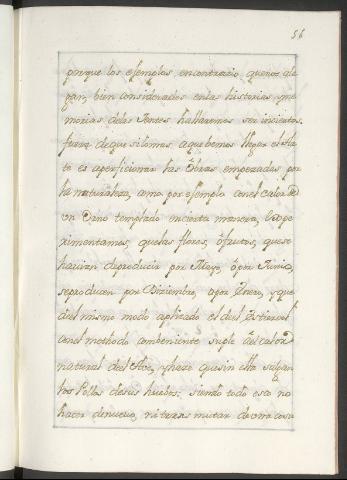 56
porque los efemplos encontrario, quenos ale
gan, bien considerados enlas historias, yme
morias delas Jentes hallaremos ser inciertos.
fuera deque silomas aquebemos llegar el Ar
te es aperficionar las Obras empezadas por
la naturaleza, como por efemplo con el calor de
un Orno templado encierta manera, Expe
rimentamos, quelas flores, ò frutos, quese
havian deproducir por Mayo, ò por Junio,
seproducen por Diziembre, o por Enero, yque
del mismo modo aplicado el del Estiercol
conel methodo combeniente suple al calor
natural del Ave, yhaze quesin ella salgan
los Pollos desus huebos; siendo todo esto no
hacer denuevo, ni transmutar de una cosa